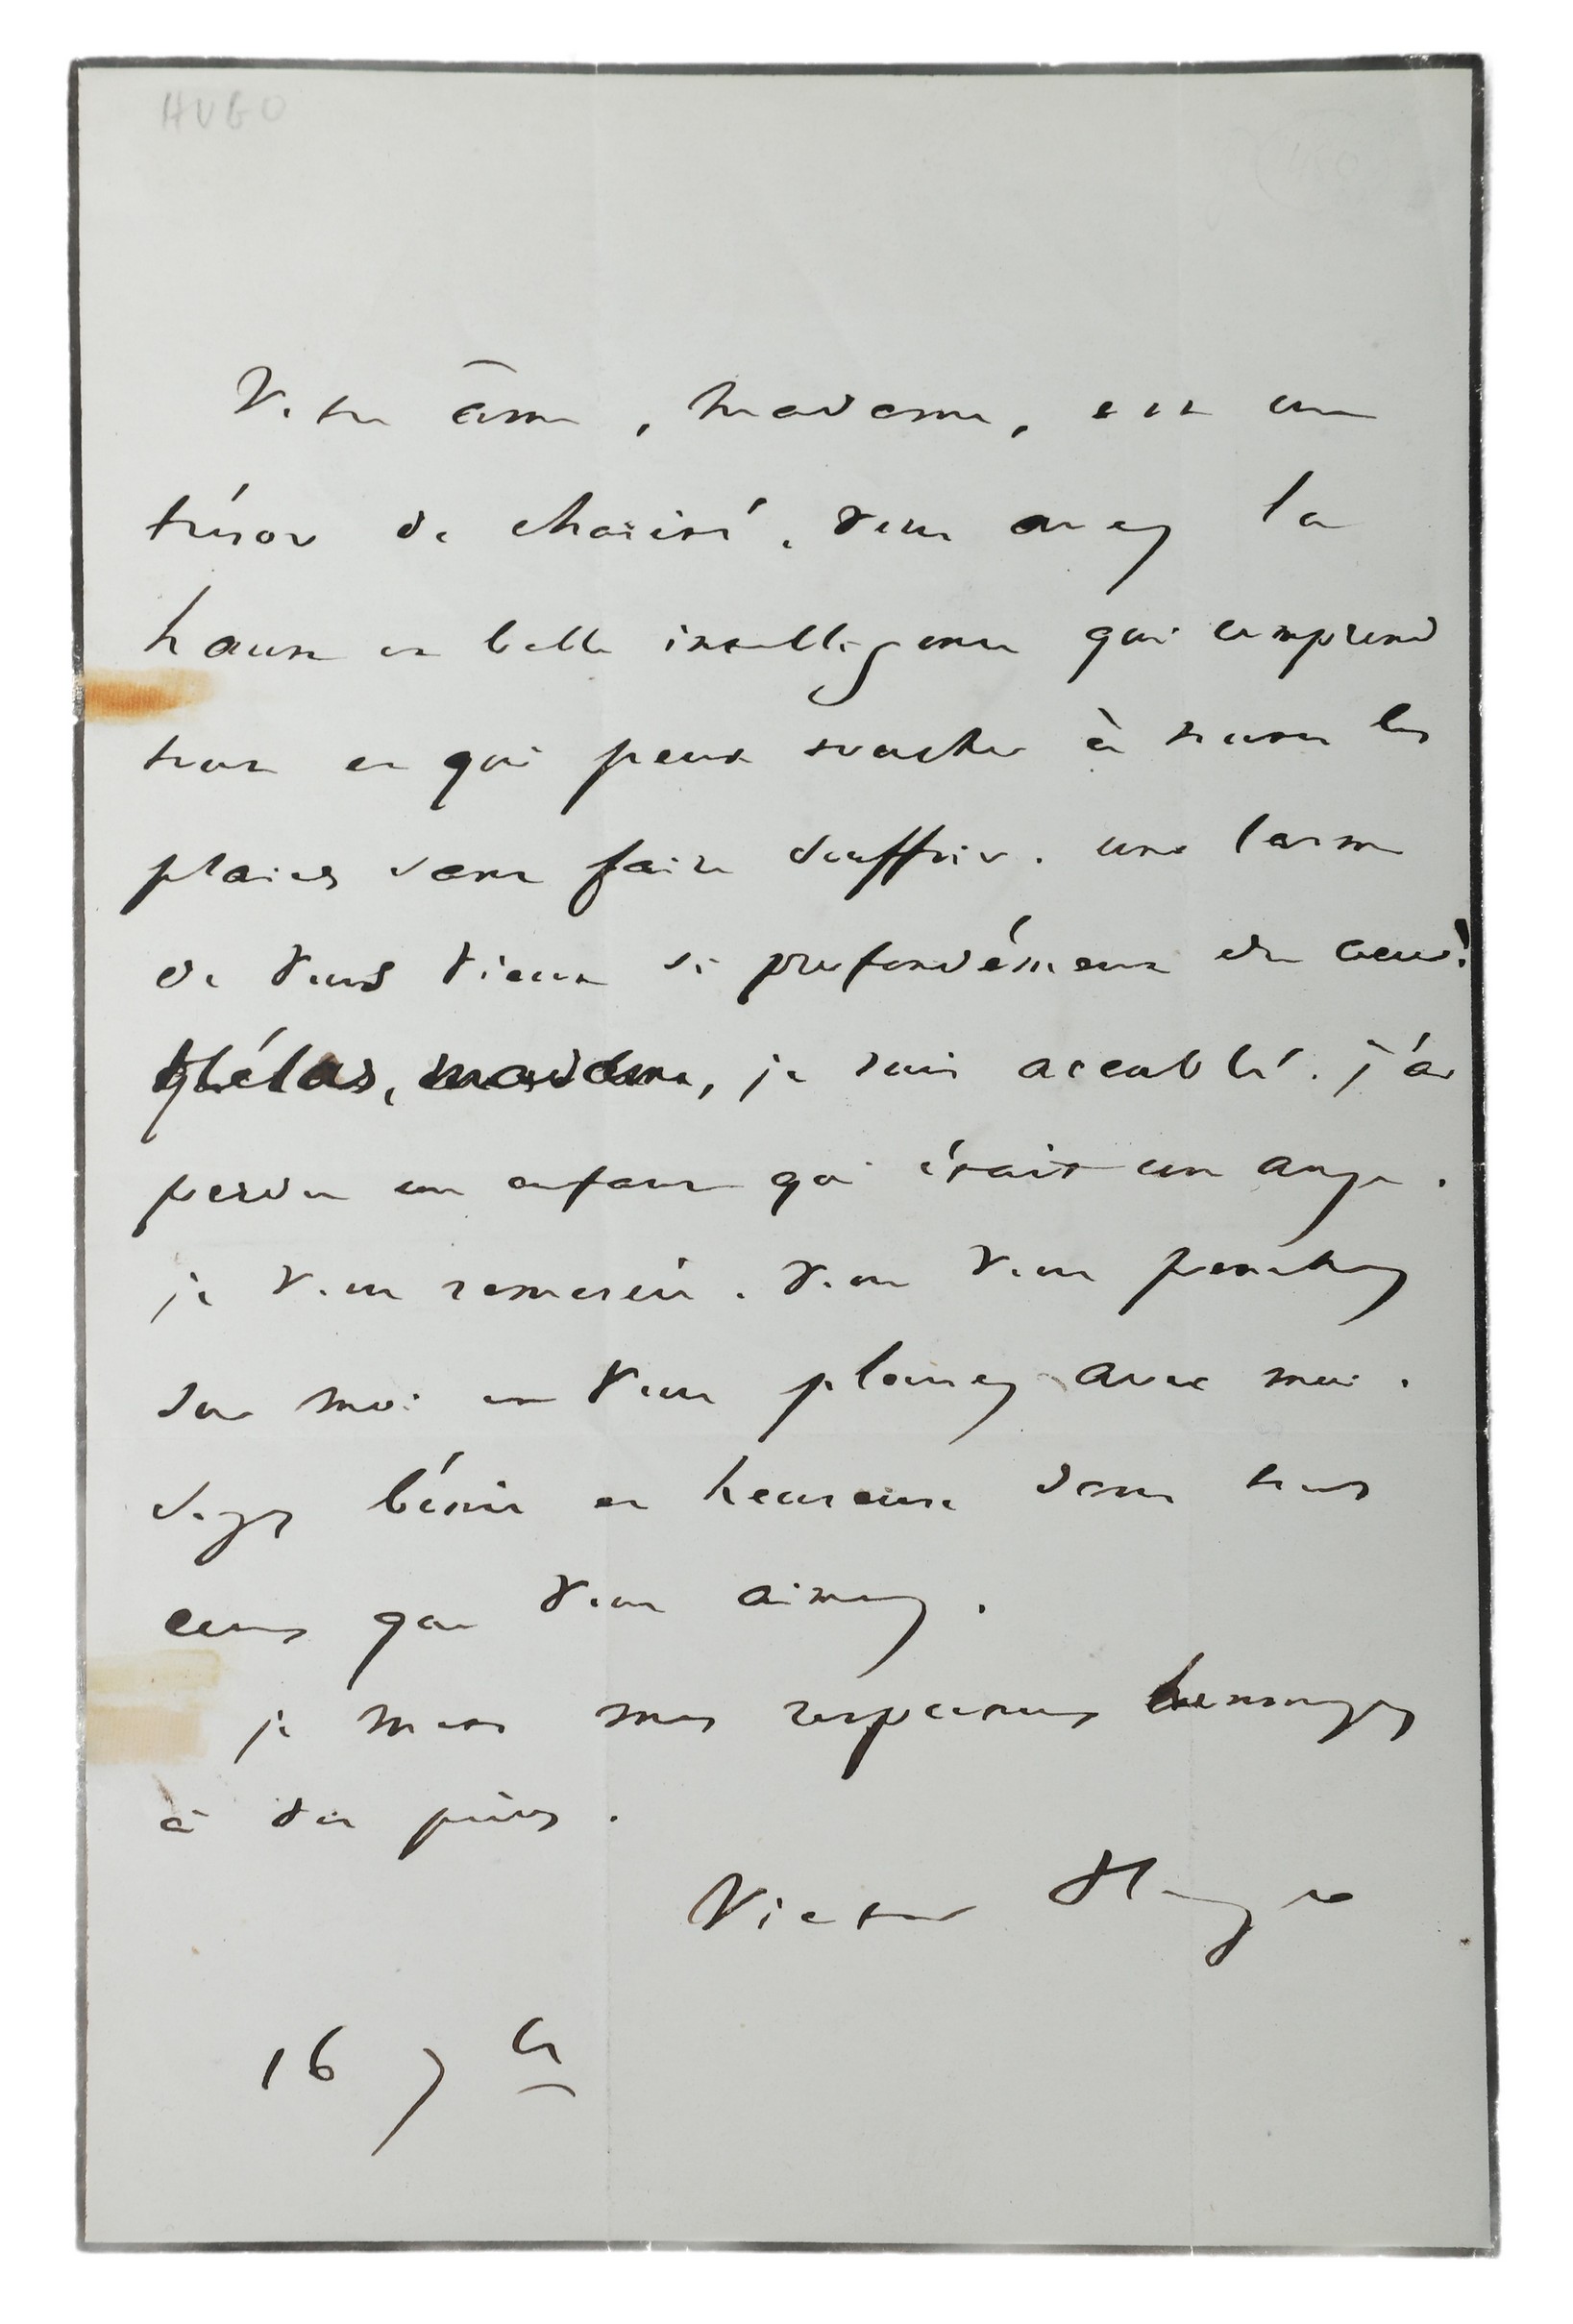 HUGO
Votre âme, madame, est un
trésor de charité. vous avez la
haute et belle intelligence qui comprend
tout et qui peut toucher à toutes les
plaies sans faire souffrir. une larme
de vous vient si profondément du cœur!
hélas, madame, je suis accablé. j'ai
perdu un enfant qui était un ange.
je vous remercie. vous vous penchez
sur moi et vous pleurez avec moi.
soyez bénie et heureuse dans tous
ceux que vous aimez.
je mets mes respectueux hommages
à vos pieds.
Victor Hugo
16 7bre